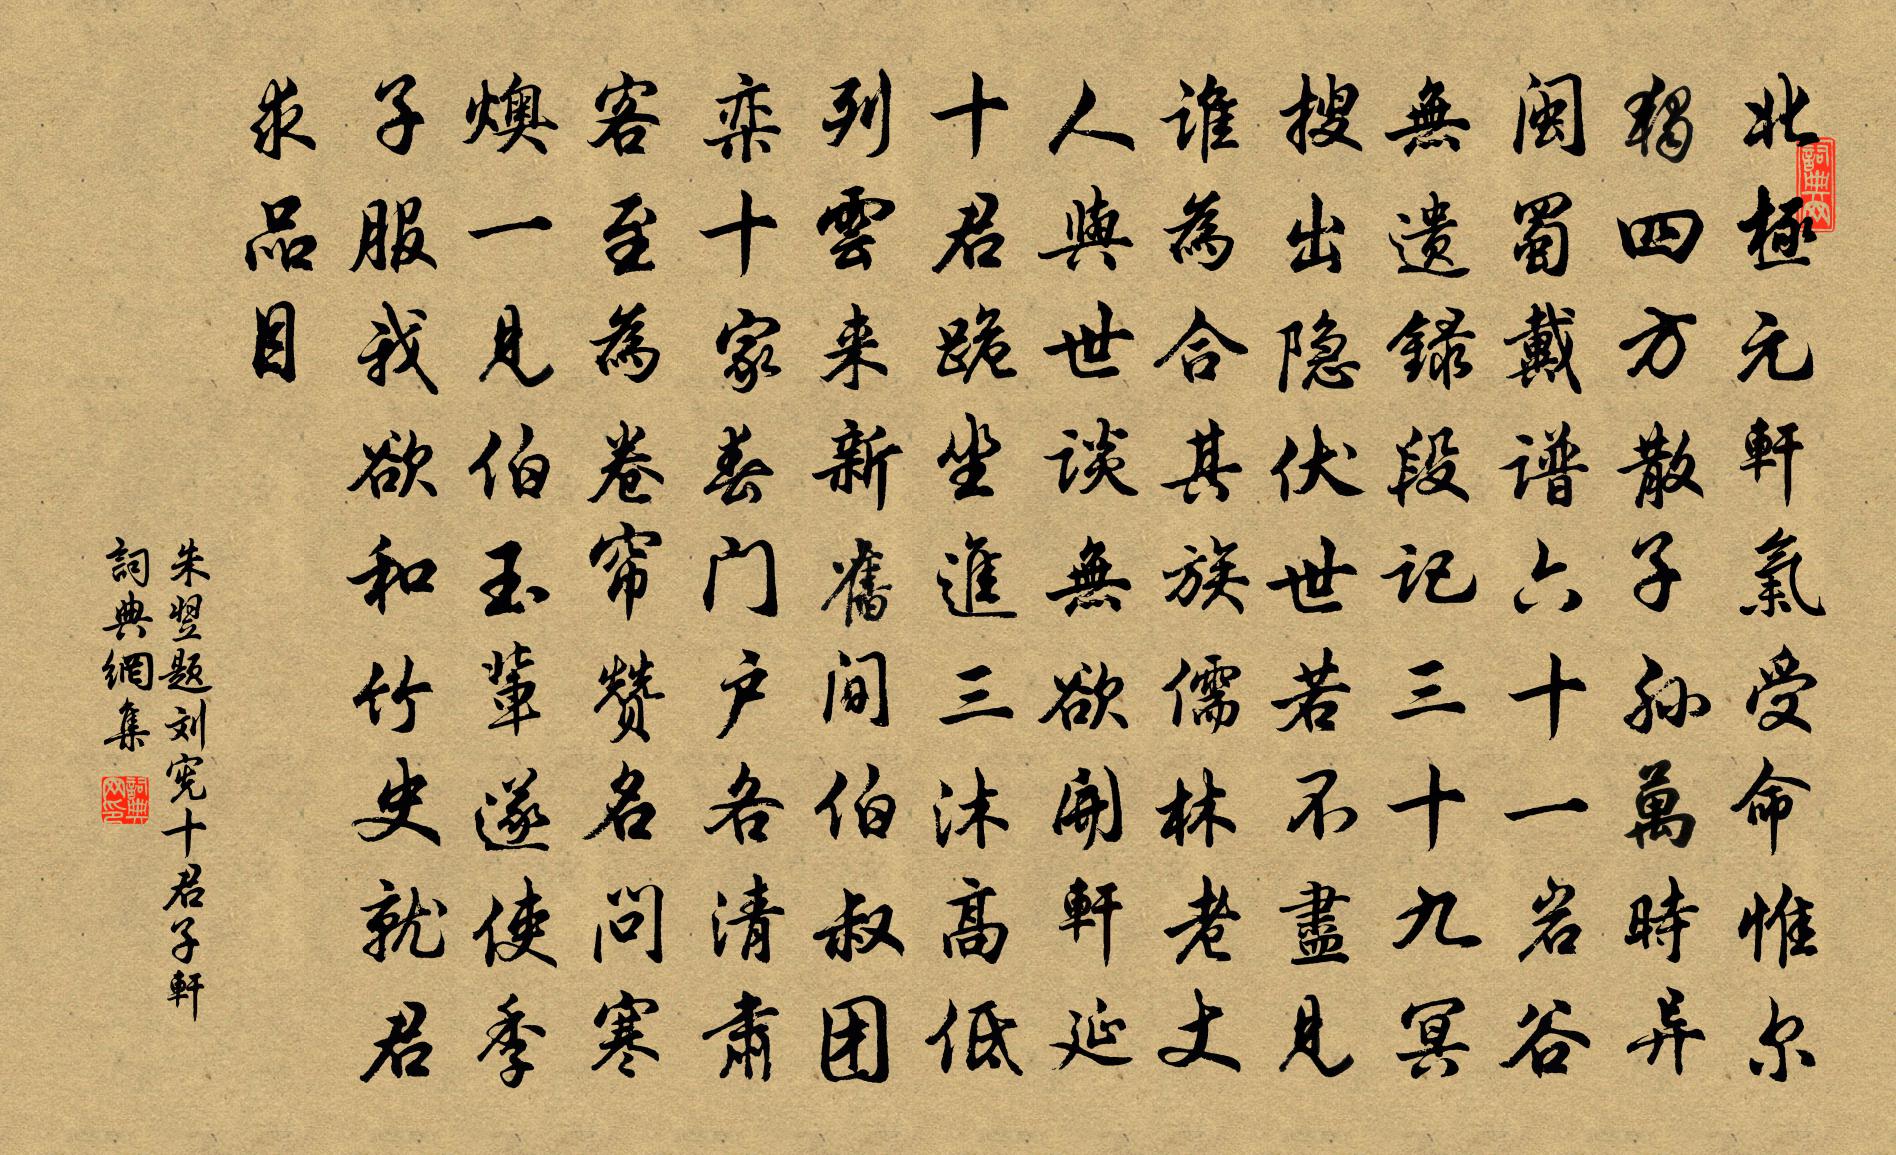 北極元軒氣受命惟尔
獨四方散子孫萬時异
閩蜀戴譜六十一岩谷
無遗錄段记三十九冥
搜出隐伏世若不盡見
谁為合其族儒林老丈
人與世談無欲開軒延
十君跪坐進三沐高低
列雲来新舊间伯叔团
栾十家春门户各清肅
客至為卷帘赞名问寒
燠一見伯玉輩遂使季
子服我欲和竹史就君
求品目
朱翌题刘宪十君子軒
詞典網集
詞典网
詞典网印